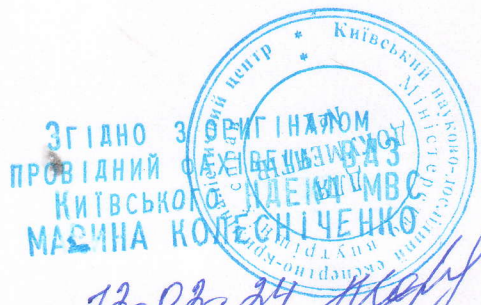 ЗГІДНО З ОРИГІНАЛОМ
ПРОВІДНИЙ ФАХІВЕЦЬ ВАЗ
КИЇВСЬКОГО НДЕКЦ МВС
МАРИНА КОЛЕСНІЧЕНКО
Київський науково-дослідний експертно-криміналістичний центр
Міністерства внутрішніх справ
ДЛЯ
ДОКУМЕНТІВ
12.02.24